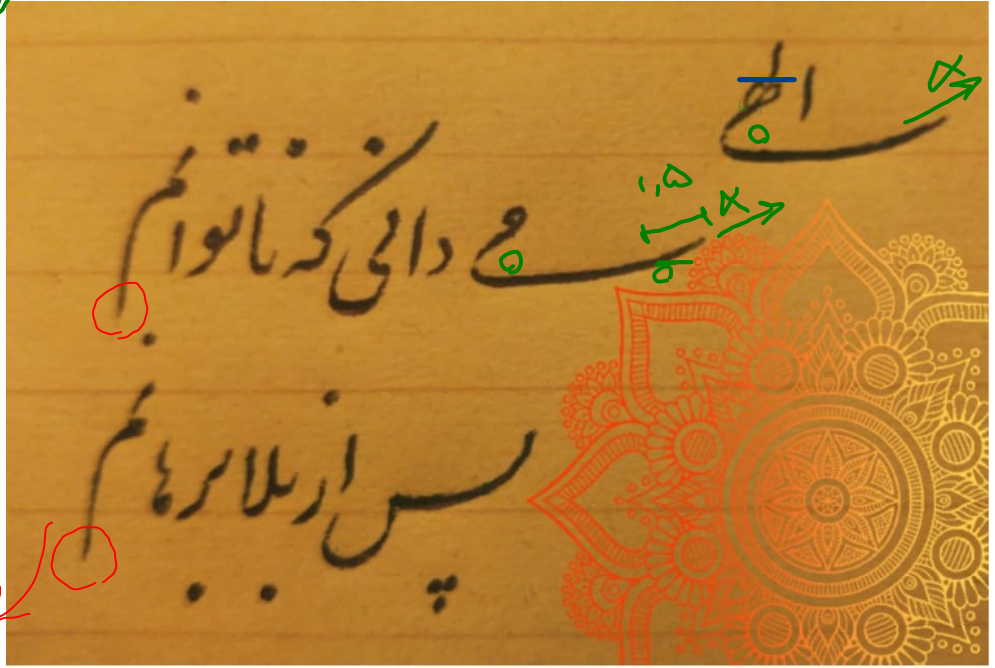 الهی
می دانی که ناتوانم
پس از بلا برهانم
۱,۵